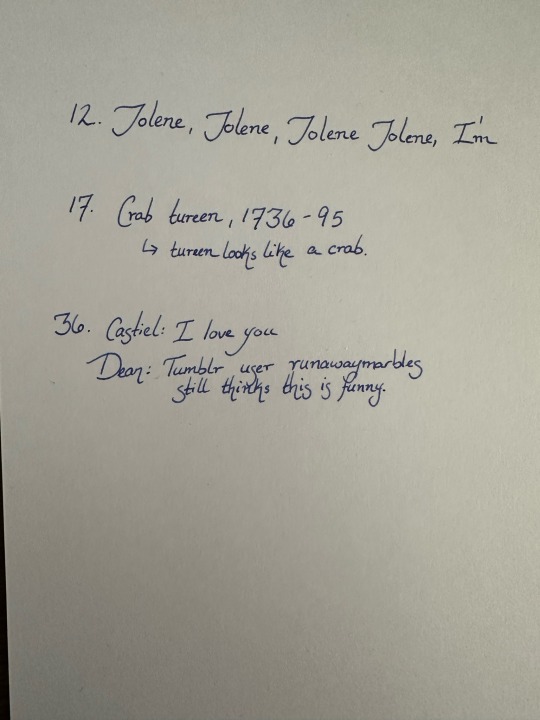 12. Jolene, Jolene, Jolene Jolene, I'm
17. Crab tureen, 1736-95
↳ tureen looks like a crab.
36. Castiel: I love you
Dean: Tumblr user runawaymarbles
still thinks this is funny.